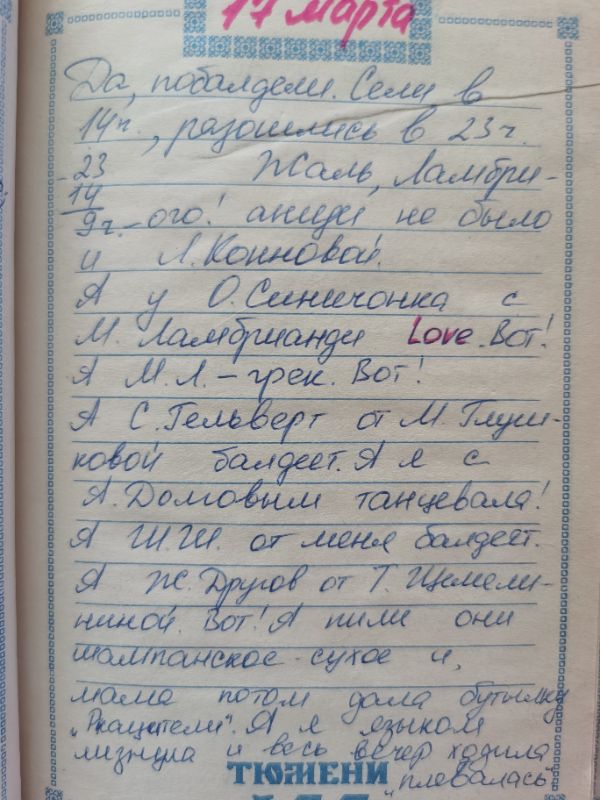 17 марта
Да, побалдели. Сели в
14ч., разошлись в 23ч.
-23 Жаль, Ламбри-
14
9ч.-ого! аниди не было
и Л. Конновой.
А у О. Синичонка с
М. Ламбрианди Love. Вот!
А М.Л. - грек. Вот!
А С. Гельверт от М. Глуш-
ковой балдеет. А я с
А. Домовым танцевала!
А Ш.Ш. от меня балдеет.
А Ж. Другов от Т. Щемели-
ниной. Вот! А пили они
шампанское - сухое и,
мама потом дала бутылку
"Ркацители". А я языком
лизнула и весь вечер ходила
"плевалась"
ТЮМЕНИ